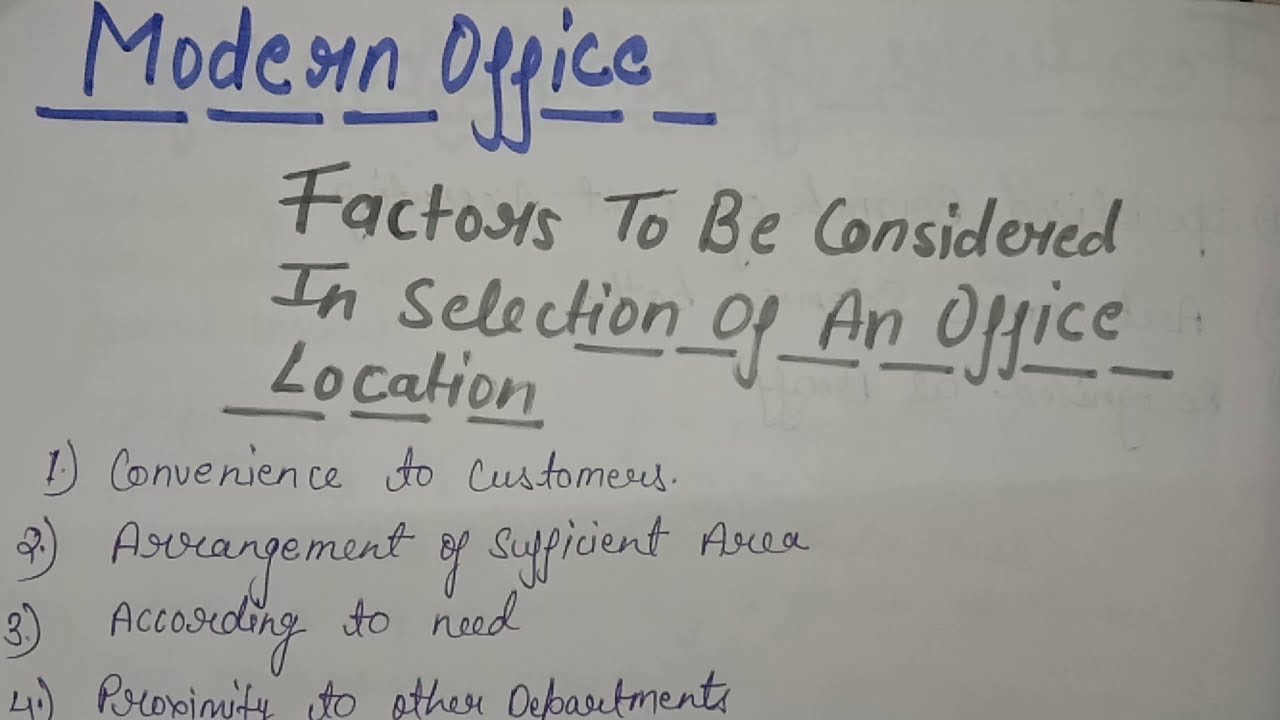 Modern Office
Factors To Be Considered
In Selection Of An Office
Location
1.) Convenience to customers.
2.) Arrangement of sufficient Area
3.) According to need
4.) Proximity to other Departments